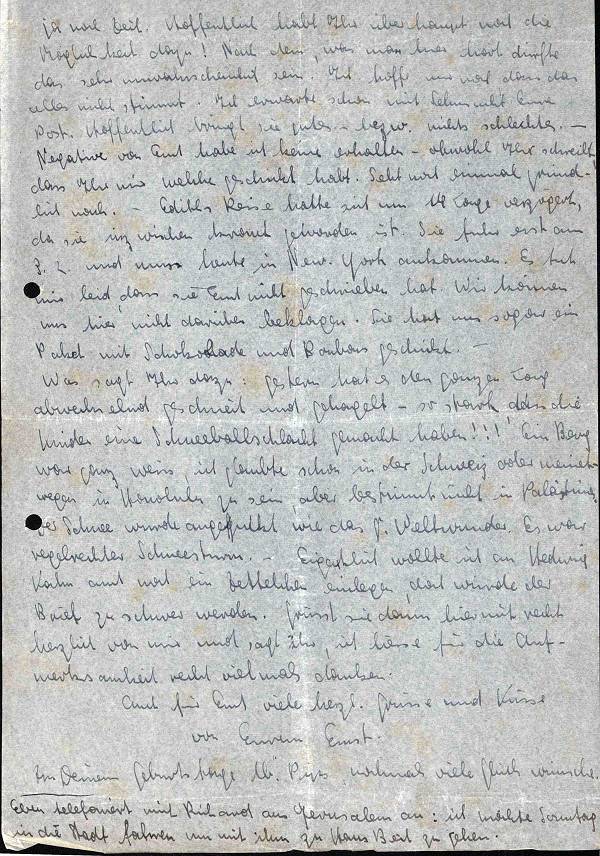 ja noch Zeit. Hoffentlich habt Ihr überhaupt noch die
Möglichkeit dazu! Nach dem, was man hier hört dürfte
das sehr unwahrscheinlich sein. Ich hoffe nur noch dass das
alles nicht stimmt. Ich erwarte schon mit Sehnsucht Eure
Post. Hoffentlich bringt sie gutes – bezw. nichts schlechtes. –
Negative von Euch habe ich keine erhalten – obwohl Ihr schreibt
dass Ihr mir welche geschickt habt. Seht noch einmal gründ-
lich nach. – Ediths Reise hatte sich um 14 Tage verzögert,
da sie inzwischen krank geworden ist. Sie fuhr erst am
3. 2. und muss heute in New-York ankommen. Es tut
mir leid, dass sie Euch nicht geschrieben hat. Wir können
uns hier nicht darüber beklagen. Sie hat uns sogar ein
Paket mit Schokolade und Bonbons geschickt. –
Was sagt Ihr dazu: gestern hat es den ganzen Tag
abwechselnd geschneit und gehagelt – so stark dass die
Kinder eine Schneeballschlacht gemacht haben!!!! Ein Berg
war ganz weiss, ich glaubte schon in der Schweiz oder meinet-
wegen in Honolulu zu sein, aber bestimmt nicht in Palästina.
Der Schnee wurde angeguckt wie das Weltwunder. Es war
regelrechter Schneesturm. – Eigentlich wollte ich an Hedwig
Kahn auch noch ein Zettelchen einlegen, doch würde der
Brief zu schwer werden. Grüsst sie dann hiermit recht
herzlich von mir und sagt Ihr, ich lasse für die Auf-
merksamkeit recht vielmals danken.
Auch für Euch viele herzl. Grüsse und Küsse
von Eurem Ernst.
Zu Deinem Geburtstage lb. nochmals viele Glückwünsche.
Eben telefoniert mit Richard aus Jerusalem an: ich möchte Sonntag
in die Stadt fahren um mit ihm zu Hans Beit zu gehen.